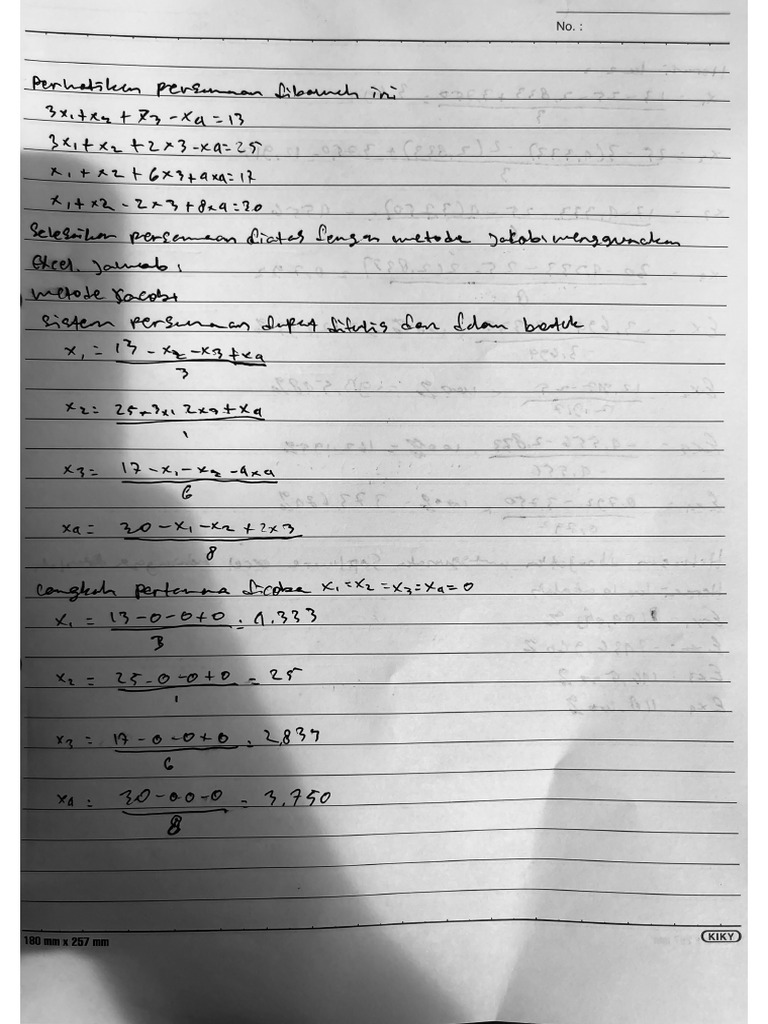 No. :
Perhatikan persamaan dibawah ini
3x₁+x₂ + x3 - x4 = 13
3x₁ + x₂ + 2x3 - x4 = 25
x₁ + x2 + 6x3 + 4x4 = 17
x₁ + x2 - 2x3 + 8x4 = 30
Selesaikan persamaan diatas dengan metode jakobi menggunakan
Excel. Jawab :
metode Jacobi
sistem persamaan dapat ditulis dan dalam bentuk
x₁ = 13 - x₂ - x3 + x4 / 3
x2 = 25 - 3x₁ 2x3 + x4 / 1
x3 = 17 - x₁ - x₂ - 4x4 / 6
x4 = 30 - x₁ - x2 + 2x3 / 8
Langkah pertama dicoba x₁ = x₂ = x₃ = x4 = 0
x₁ = 13 - 0 - 0 + 0 / 3 = 4.333
x₂ = 25 - 0 - 0 + 0 / 1 = 25
x3 = 17 - 0 - 0 + 0 / 6 = 2,833
x4 = 30 - 0 0 - 0 / 8 = 3,750
180 mm x 257 mm
KIKY